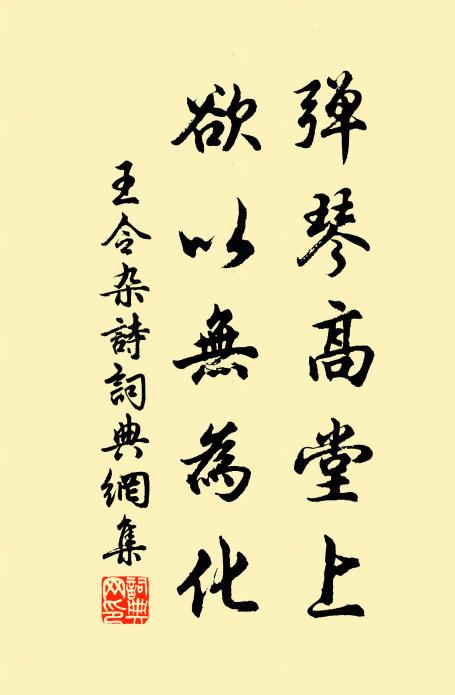 弾琴高堂上
欲以無為化
王令杂詩詞典網集
詞典網印